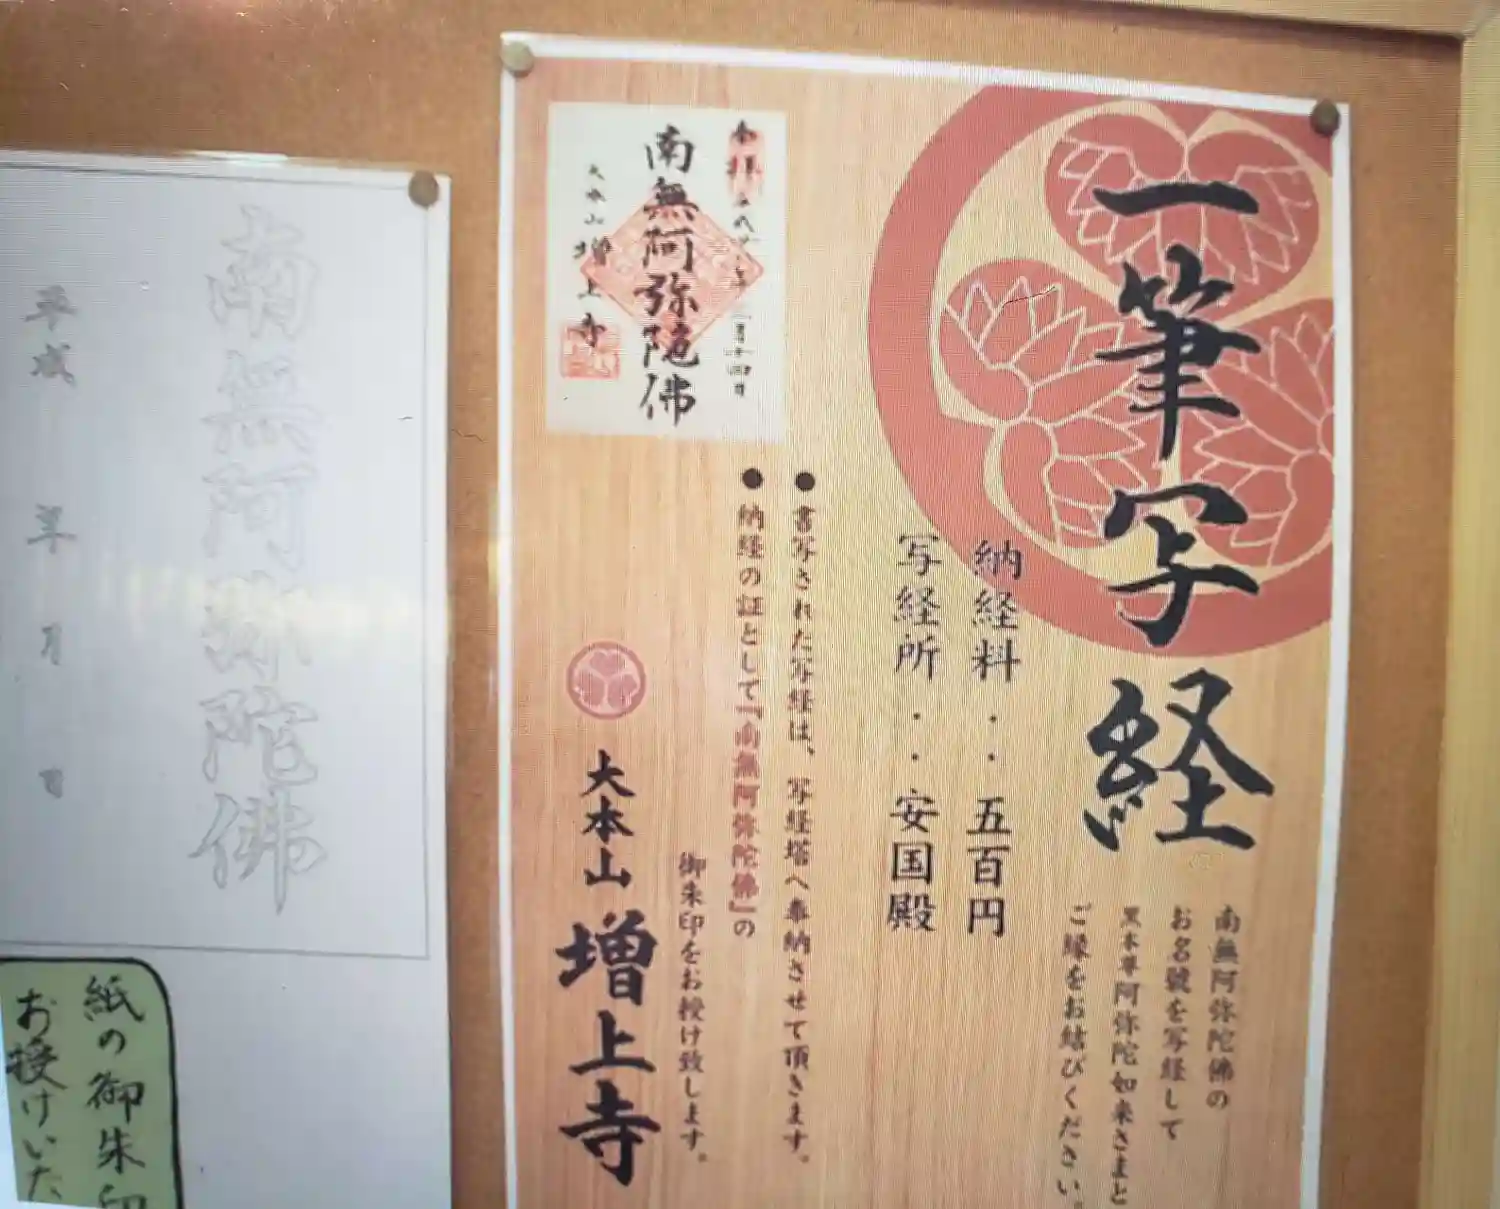 一筆写経
南無阿弥陀佛の
お名號を写経して
黒本尊阿弥陀如来さまと
ご縁をお結びください。
納経料・・五百円
写経所・・安国殿
●書写された写経は、写経塔へ奉納させて頂きます。
●納経の証として『南無阿弥陀佛』の
御朱印をお授け致します。
大本山 増上寺
奉拝
南無阿弥陀佛
大本山 増上寺
南無阿弥陀佛
平成 年 月 日
紙の御朱印
お授けいた